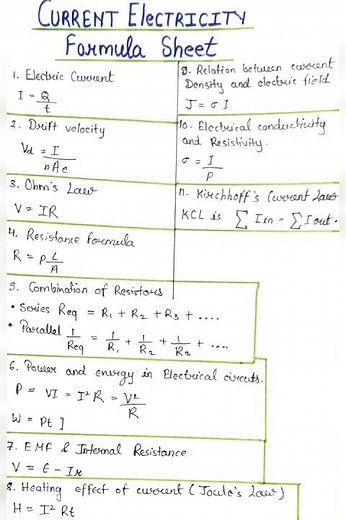 CURRENT ELECTRICITY
Formula Sheet
1. Electric Current
I = Q/t
2. Drift velocity
Vd = I/nAe
3. Ohm's Law
V = IR
4. Resistance formula
R = ρ L/A
5. Combination of Resistors
• Series Req = R1 + R2 + R3 + ....
• Parallel 1/Req = 1/R1 + 1/R2 + 1/R3 + ....
6. Power and energy in Electrical circuits.
P = VI = I²R = V²/R
W = Pt ]
7. EMF & Internal Resistance
V = E - Ir
8. Heating effect of current (Joule's Law)
H = I² Rt
9. Relation between current
Density and electric field
J = σ I
10. Electrical conductivity
and Resistivity.
σ = I/ρ
11. Kirchhoff's Current Law
KCL is ∑ Iin = ∑ Iout.